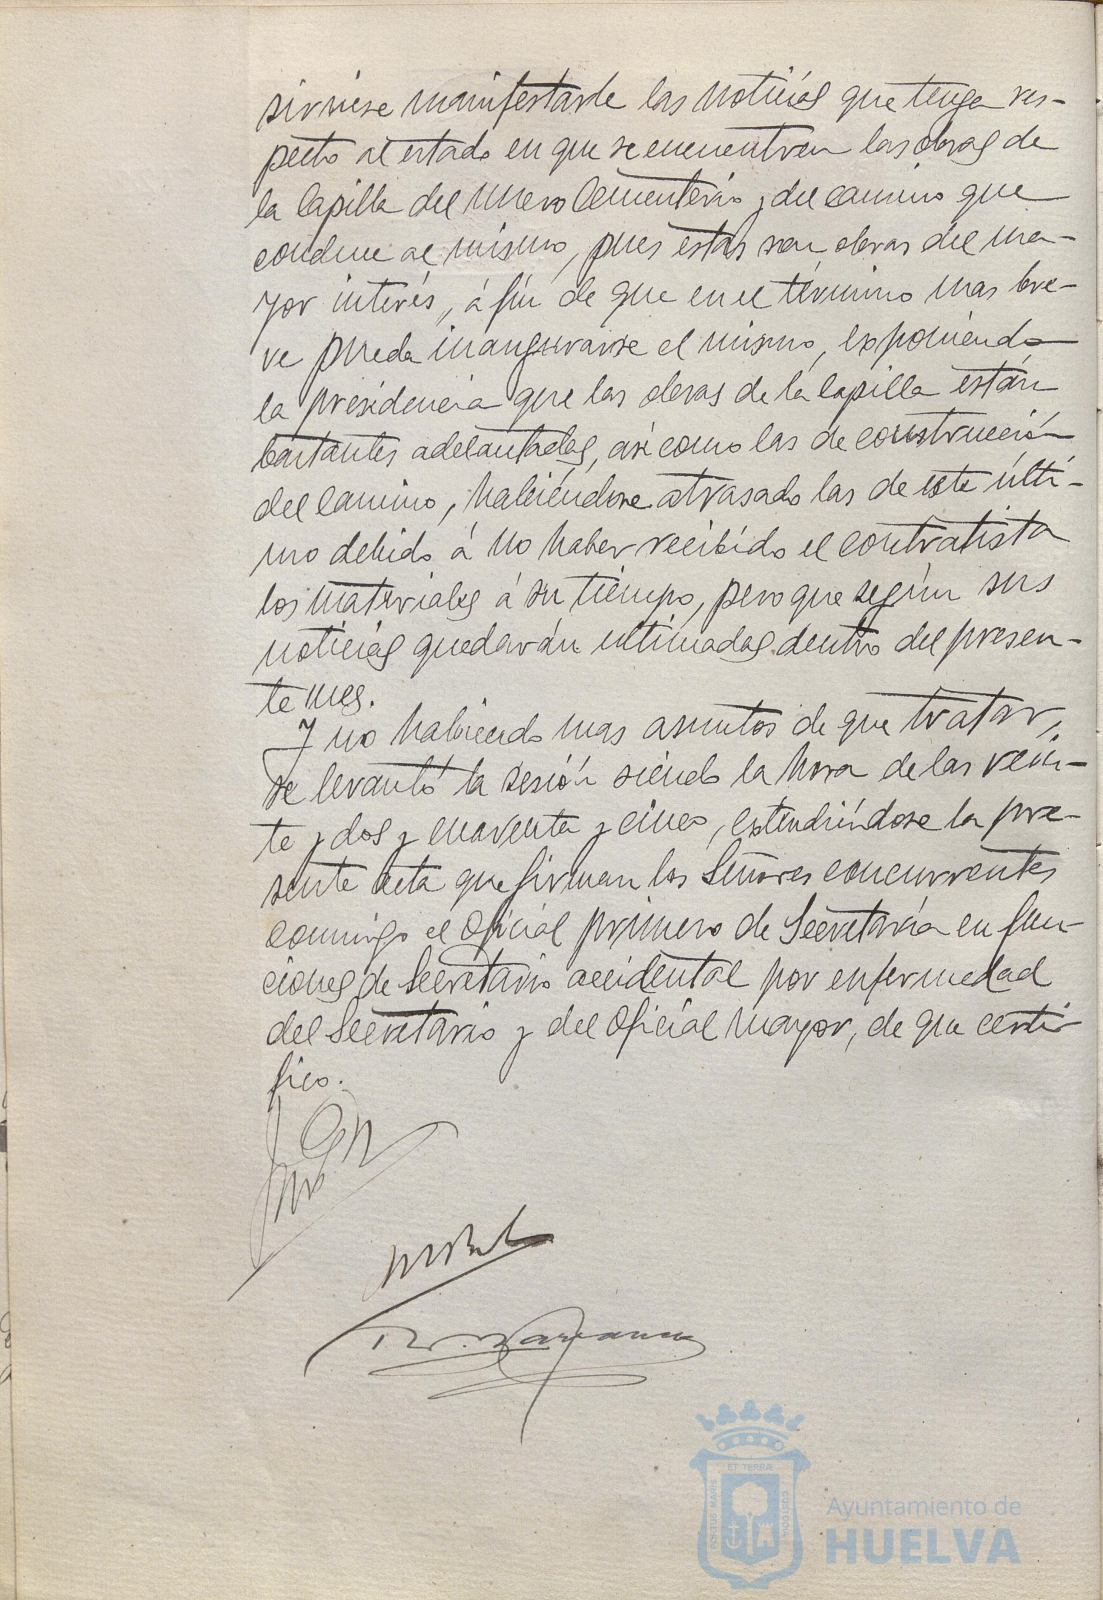 sirviese manifestarle las noticias que tenga res-
pecto al estado en que se encuentren las obras de
la Capilla del Nuevo Cementerio y del camino que
conduce al mismo, pues estas son obras del ma-
yor interés, á fin de que en el término mas bre-
ve pueda inaugurarse el mismo, exponiendo
la presidencia que las obras de la Capilla están
bastantes adelantadas, asi como las de construcción
del camino, habiéndose atrasado las de este últi-
mo debido á no haber recibido el contratista
los materiales á su tiempo, pero que según sus
noticias quedarán ultimadas dentro del presen-
te mes.
Y no habiendo mas asuntos de que tratar,
se levantó la sesión siendo la hora de las vein-
te y dos y cuarenta y cinco, extendiéndose la pre-
sente acta que firman los Señores concurrentes
conmigo el Oficial primero de Secretaría en fun-
ciones de Secretario accidental por enfermedad
del Secretario y del Oficial Mayor, de que certi-
fico.
ET TERRÆ
PORTUS MARIS
CUSTODIA
Ayuntamiento de
HUELVA